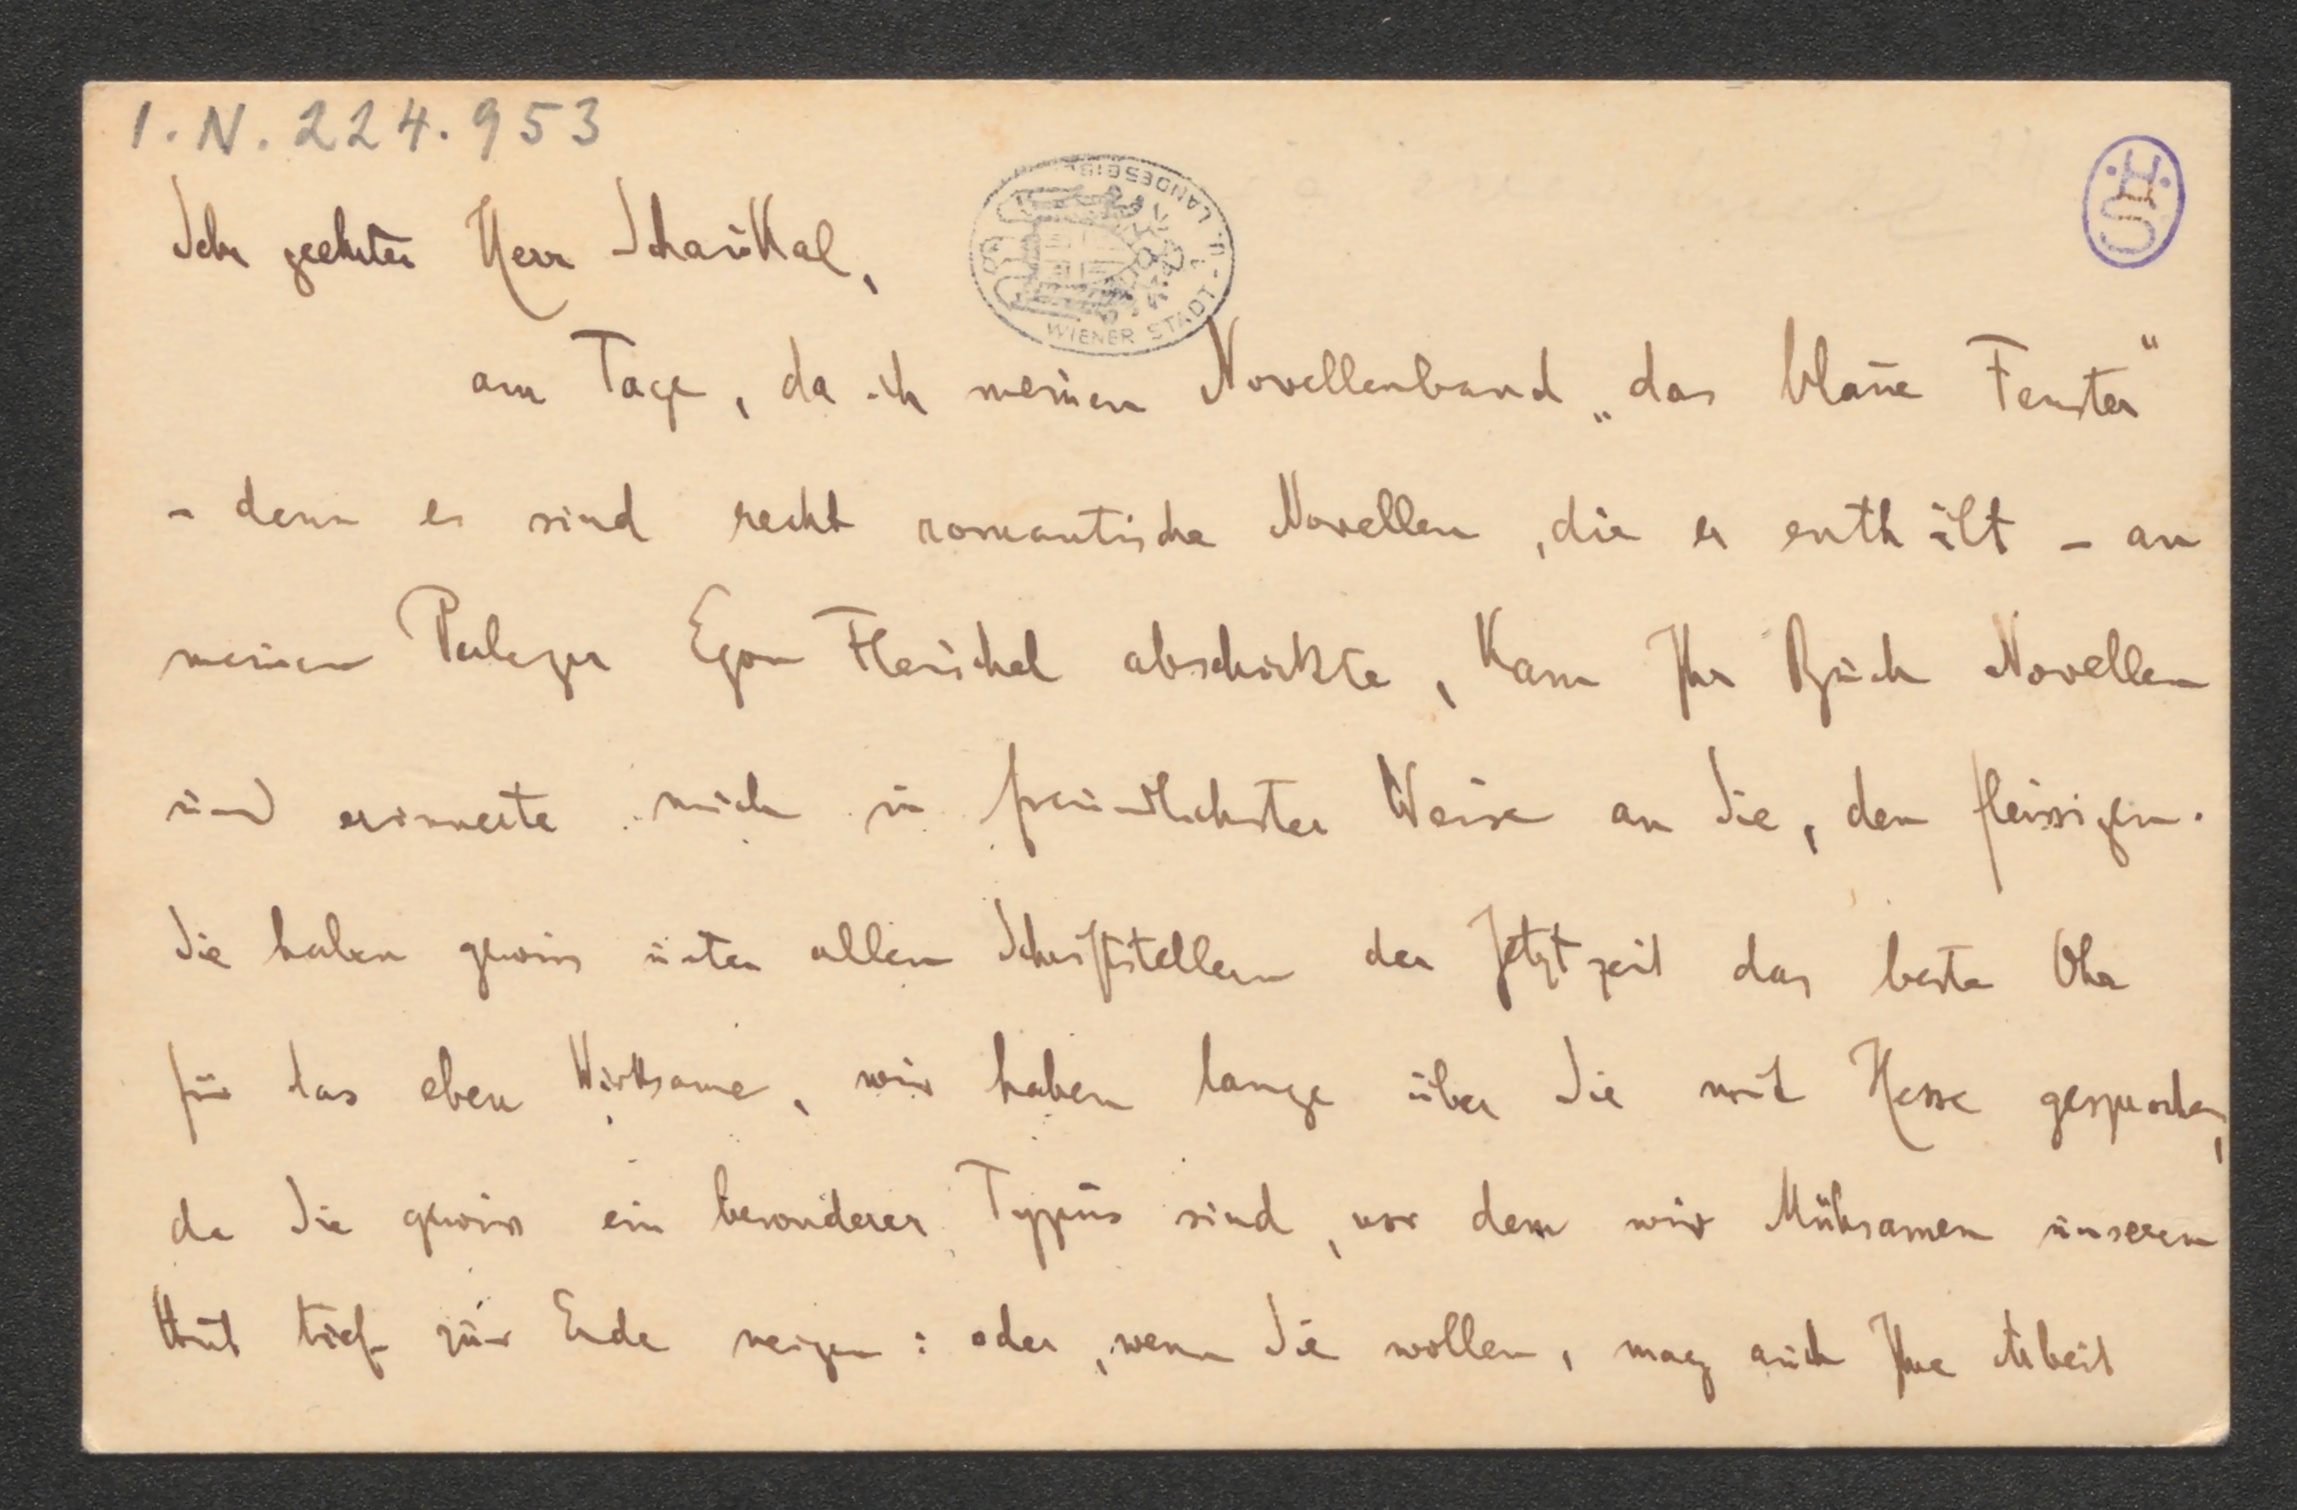 I.N. 224.953
Sehr geehrter Herr Schaukal,
WIENER STADT- U. LANDES
HS
am Tage, da ich meinen Novellenband „das blaue Fenster“
- denn es sind recht romantische Novellen, die er enthält - an
meinen Verleger Egon Fleischel abschickte, kam Ihr Buch Novellen
und erinnerte mich in freundlichster Weise an Sie, den fleissigen.
Sie haben gewiss unter allen Schriftstellern der Jetztzeit das beste Ohr
für das eben Wirksame, wir haben lange über Sie mit Hesse gesprochen,
da Sie gewiss ein besonderer Typus sind, vor dem wir Mühsamen unseren
Hut tief zur Erde neigen: oder, wenn Sie wollen, mag auch Ihre Arbeit